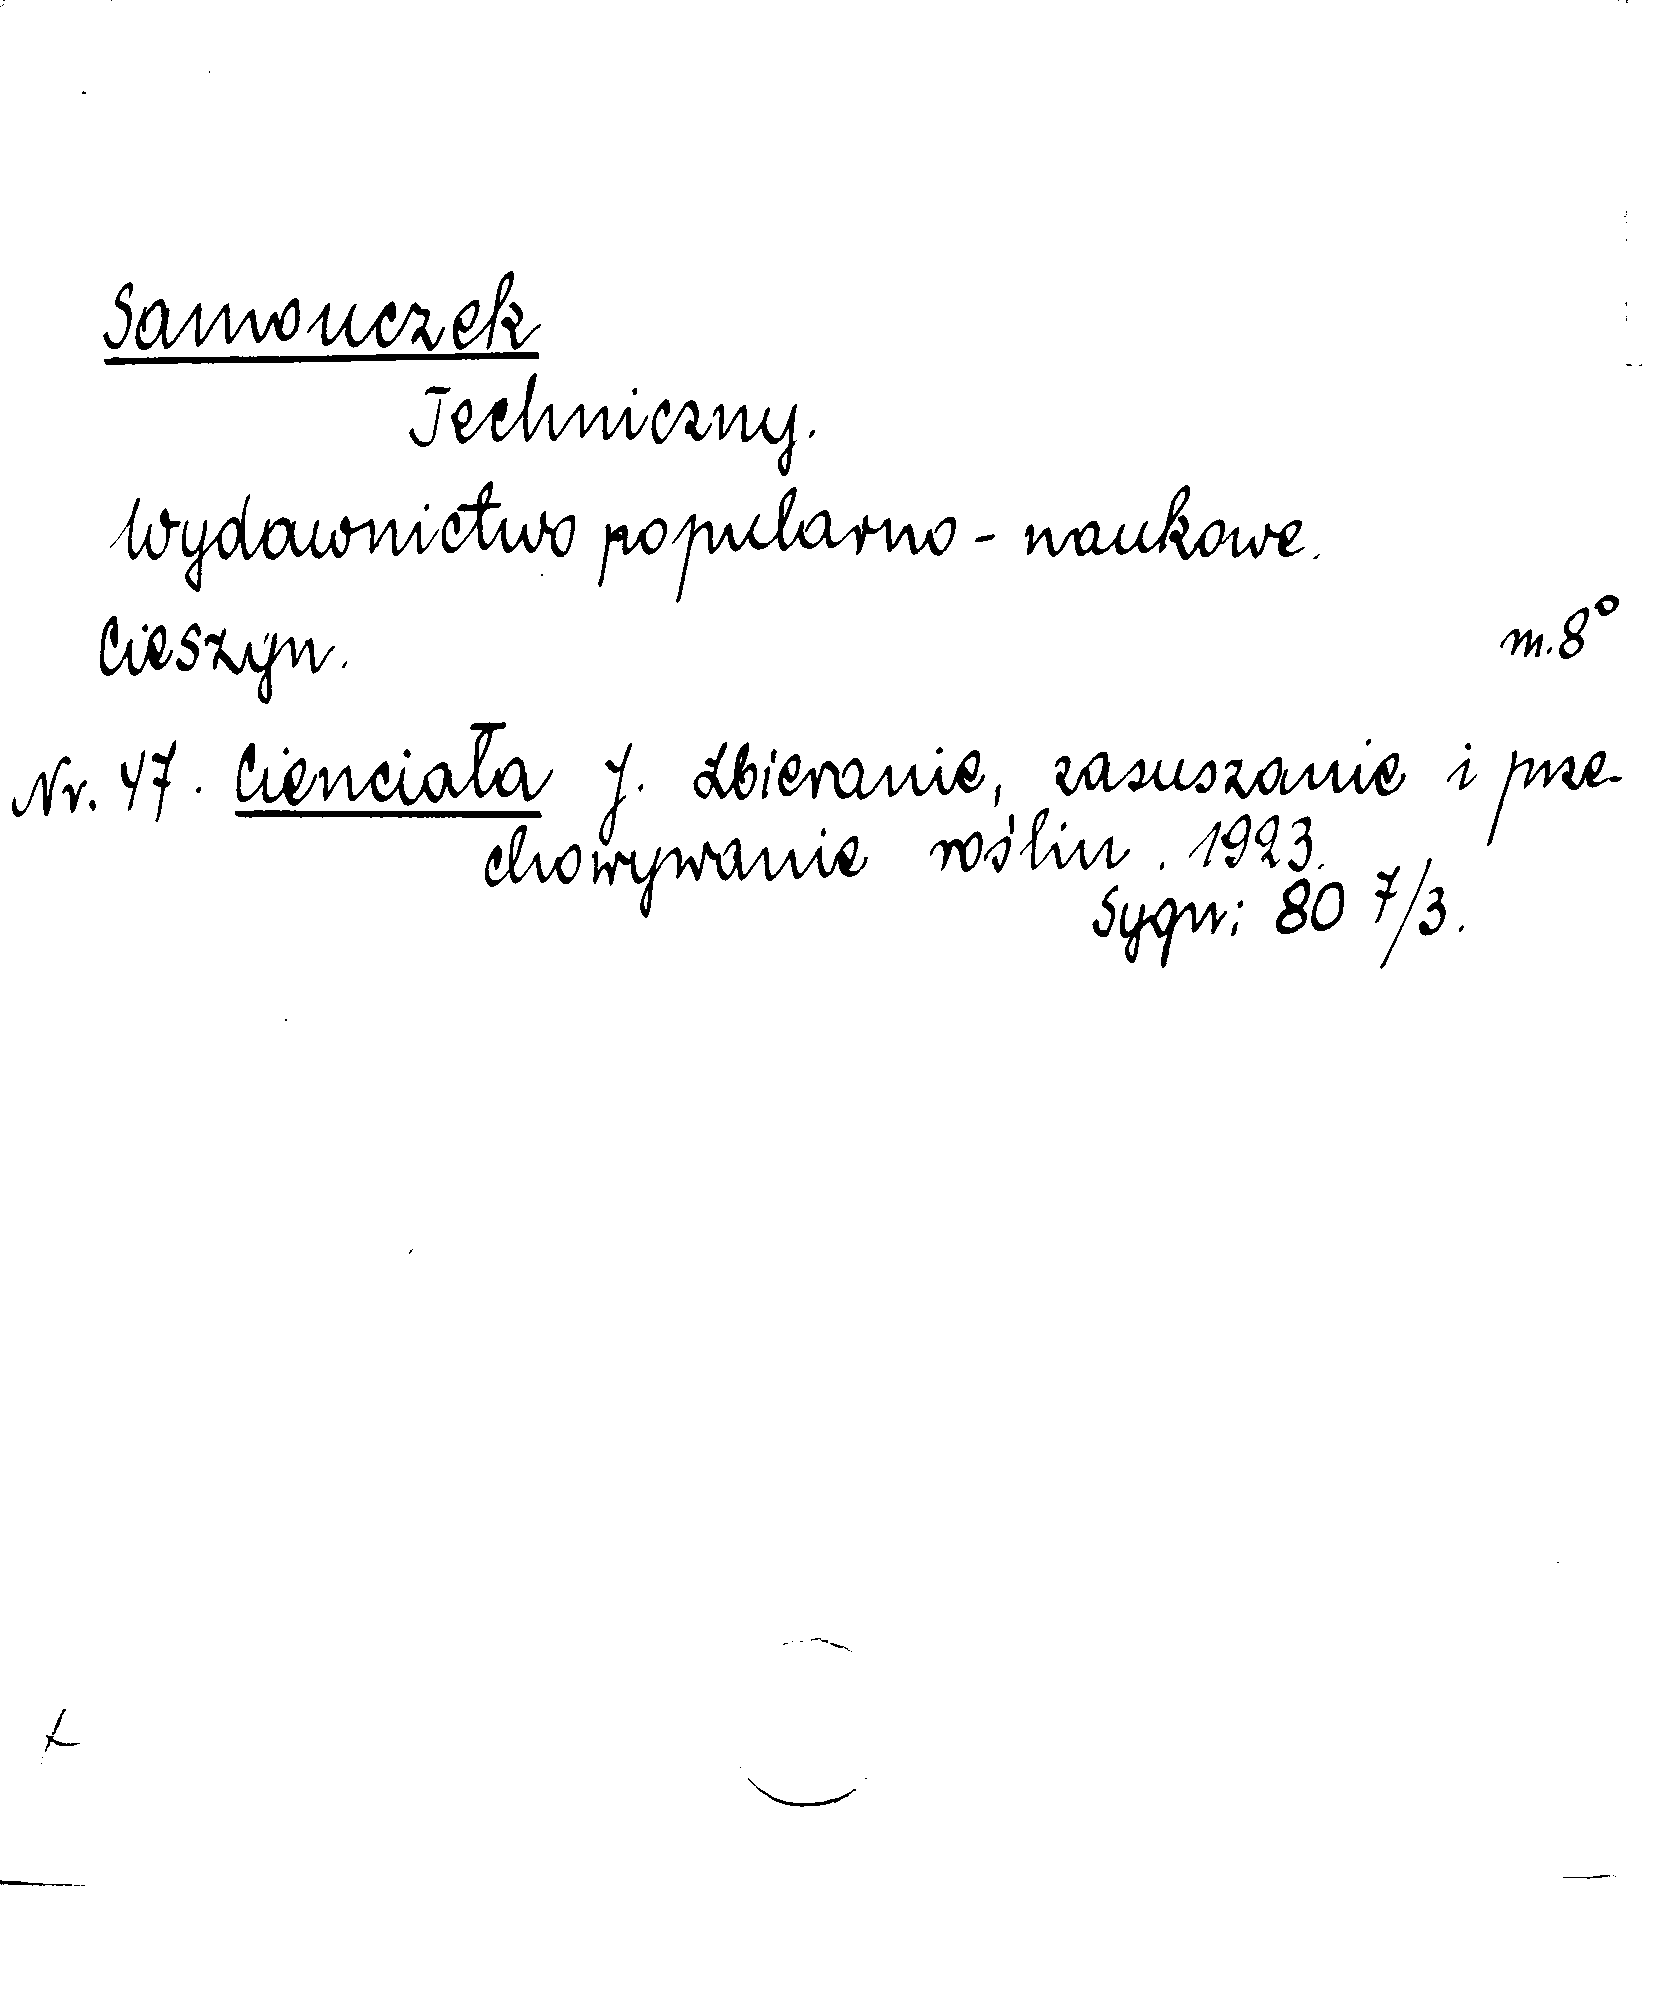 Samouczek
Techniczny.
Wydawnictwo popularno - naukowe.
Cieszyn. m. 8°
Nr. 47. Cienciała J. Zbieranie, zasuszanie i prze-
chowywanie roślin. 1923.
Sygn: 80 7/3.